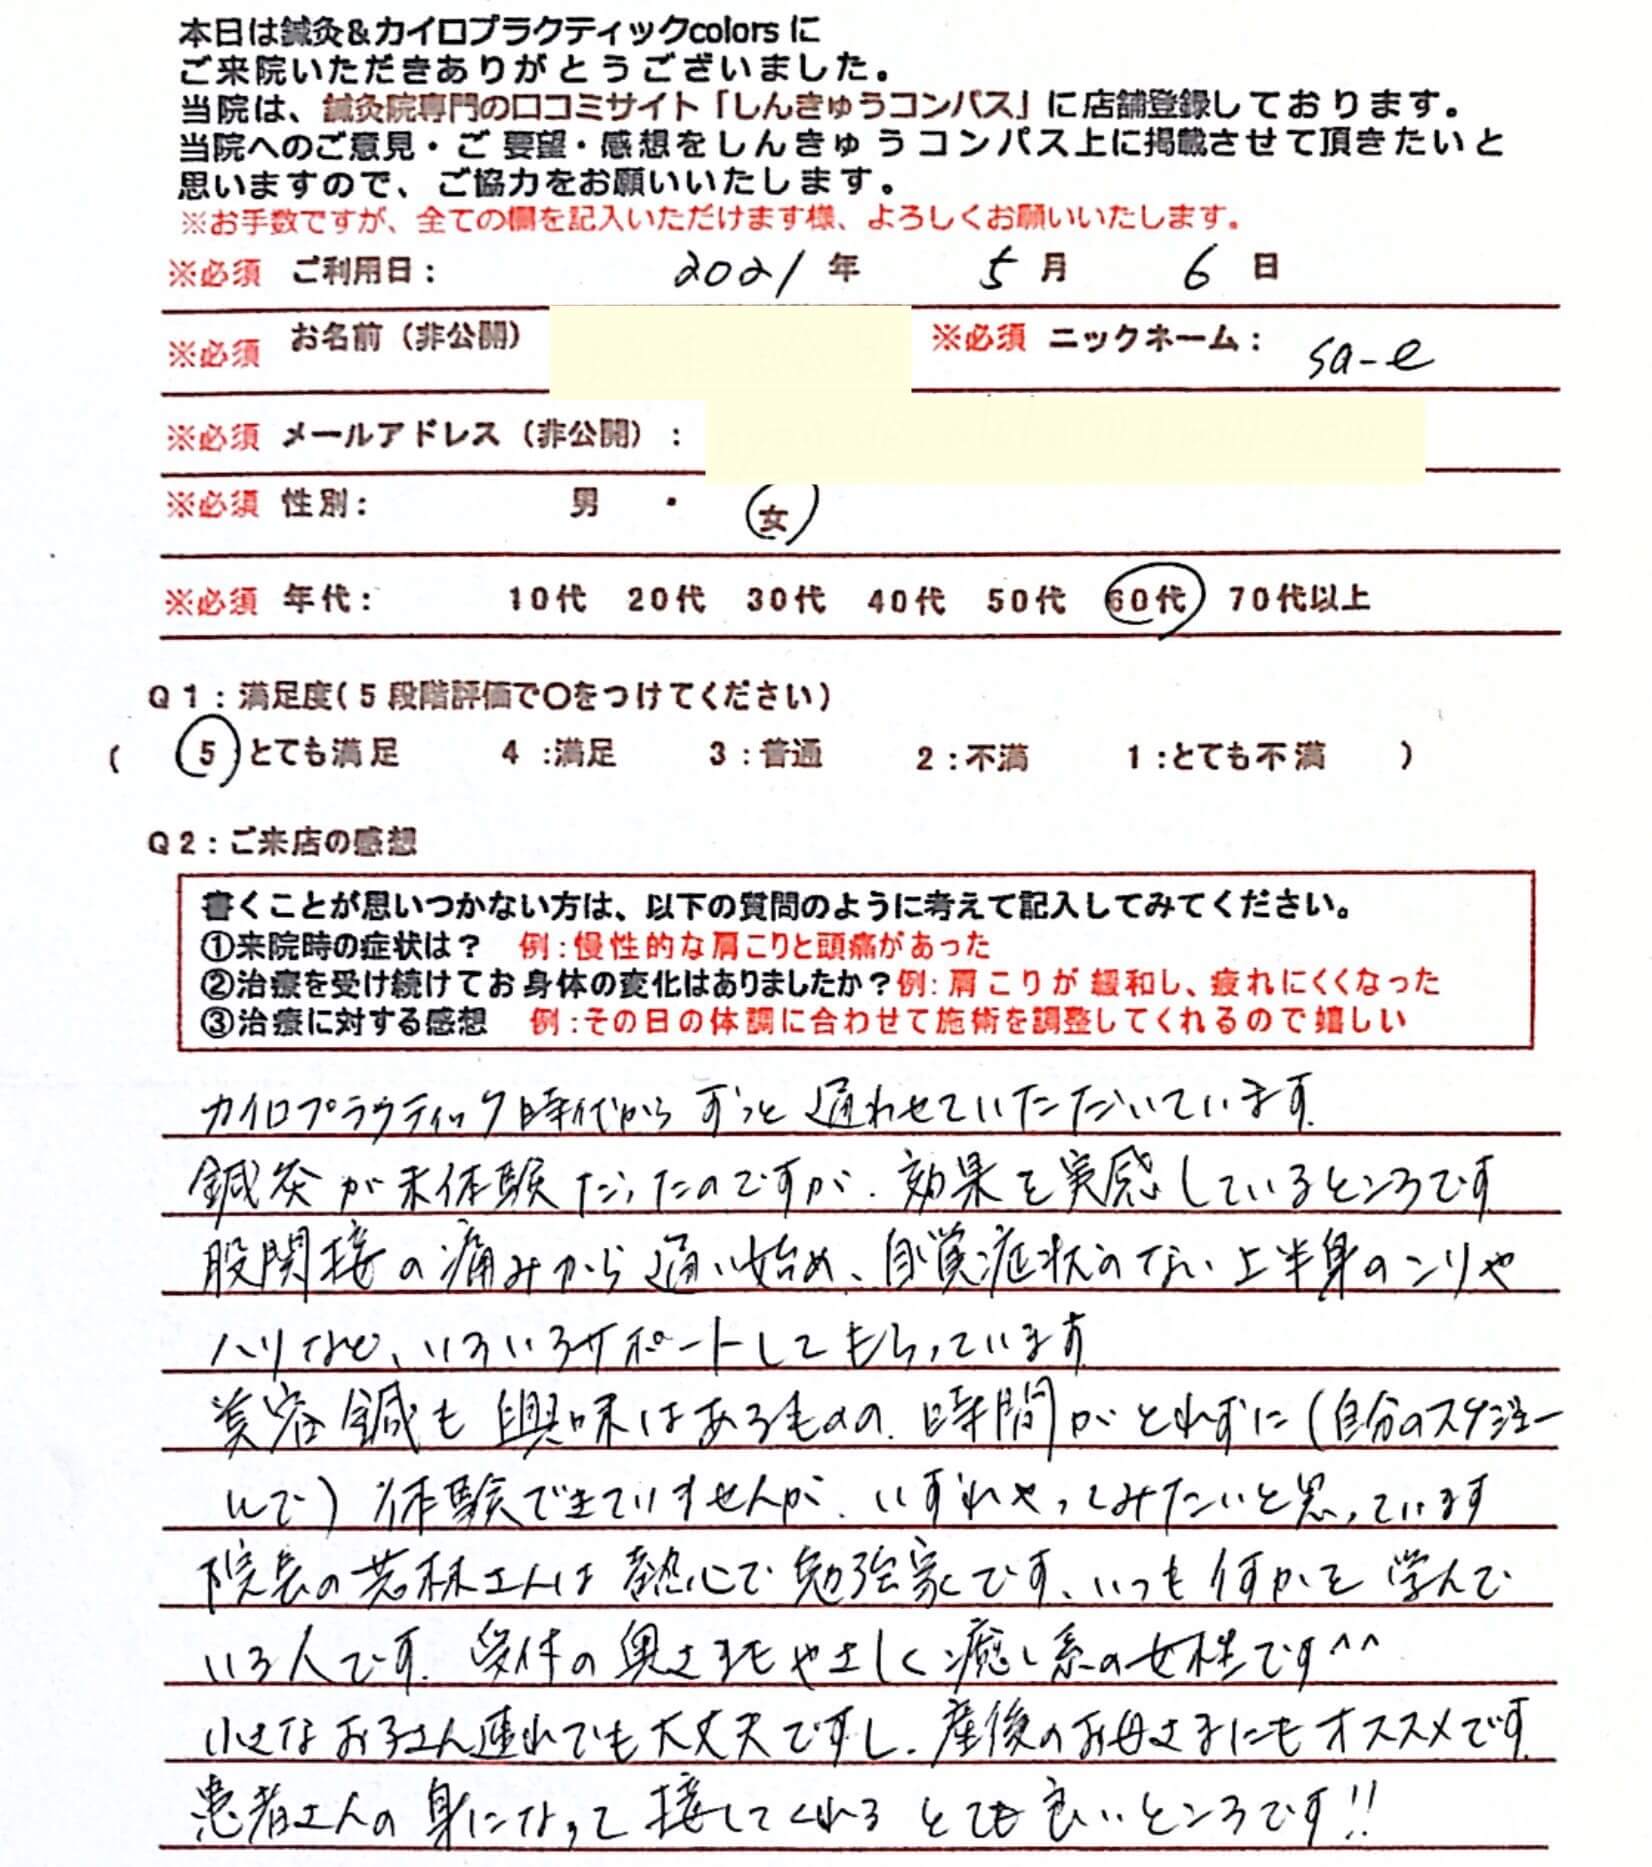 本日は鍼灸&カイロプラクティックcolorsに
ご来院いただきありがとうございました。
当院は、鍼灸院専門の口コミサイト「しんきゅうコンパス」に店舗登録しております。
当院へのご意見・ご要望・感想をしんきゅうコンパス上に掲載させて頂きたいと
思いますので、ご協力をお願いいたします。
※お手数ですが、全ての欄を記入いただけます様、よろしくお願いいたします。
※必須 ご利用日: 2021年 5月 6日
※必須 お名前(非公開) ※必須 ニックネーム: sa-e
※必須 メールアドレス(非公開):
※必須 性別: 男 ・ 女
※必須 年代: 10代 20代 30代 40代 50代 60代 70代以上
Q1:満足度(5段階評価で〇をつけてください)
( 5 とても満足 4:満足 3:普通 2:不満 1:とても不満 )
Q2:ご来店の感想
書くことが思いつかない方は、以下の質問のように考えて記入してみてください。
①来院時の症状は? 例:慢性的な肩こりと頭痛があった
②治療を受け続けてお身体の変化はありましたか?例:肩こりが緩和し、疲れにくくなった
③治療に対する感想 例:その日の体調に合わせて施術を調整してくれるので嬉しい
カイロプラクティック時代からずっと通わせていただいています.
鍼灸が未体験だったのですが、効果を実感しているところです
股関接の痛みから通い始め、自覚症状のない上半身のコリや
ハリなど、いろいろサポートしてもらっています
美容鍼も興味はあるものの、時間がとれずに(自分のスケジュー
ルで)体験できていませんが、いずれやってみたいと思っています
院長の若林さんは熱心で勉強家です、いつも何かを学んで
いる人です. 受付の奥さまもやさしく癒し系の女性です^^
小さなお子さん連れでも大丈夫ですし、産後のお母さまにもオススメです.
患者さんの身になって接してくれるとても良いところです!!